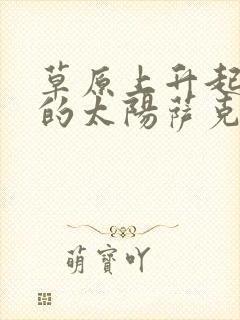 草原上升起
的太陽薩克
萌寶吖